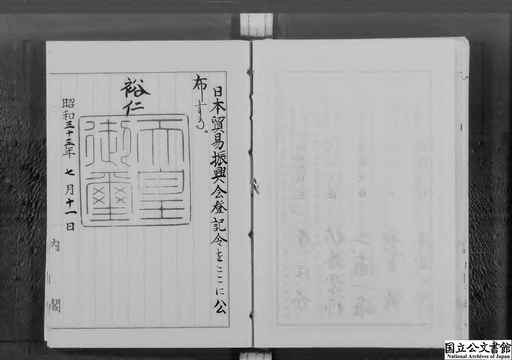 日本貿易振興会登記令をここに公
布する。
裕仁
天皇
御璽
昭和三十三年七月十一日
内閣
国立公文書館
National Archives of Japan